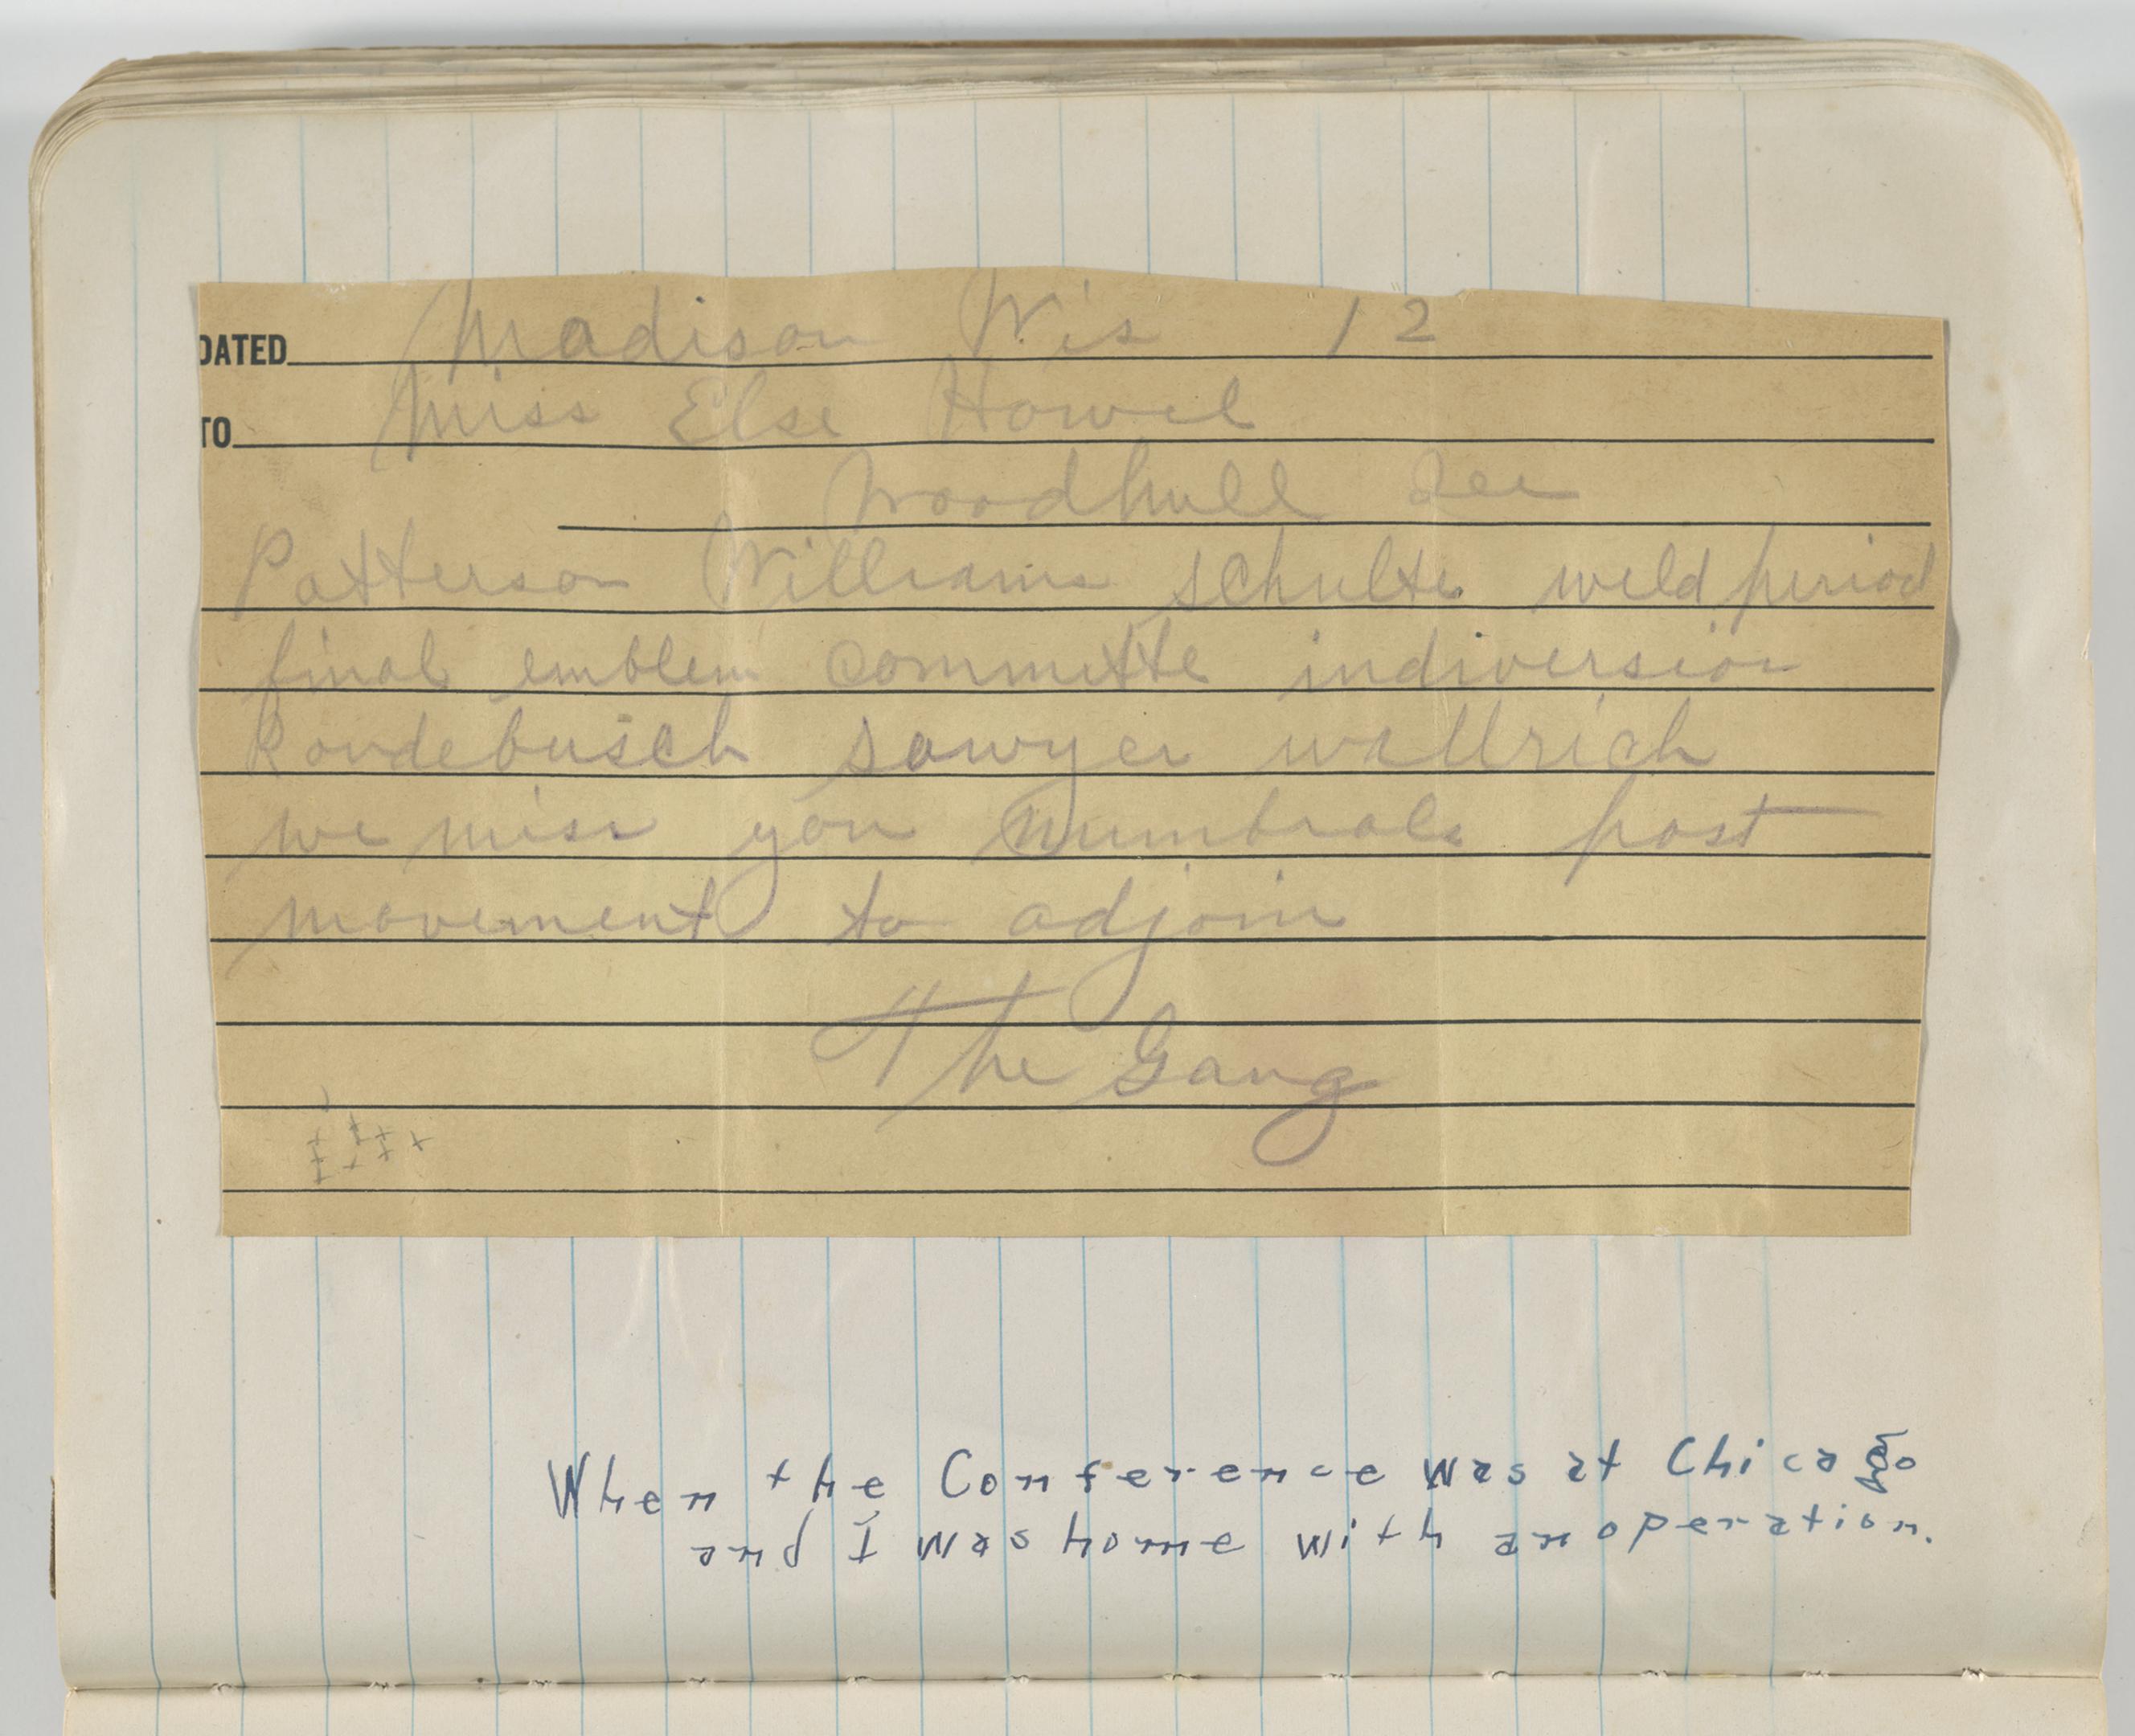 DATED Madison Wis 12
TO Miss Else Howel
Woodhull Ill
Patterson Williams schulte weld period
final emblem committe indiversion
Roudebusch sawyer wallrich
we miss you numbrals post
movement to adjoin
The Gang
When the Conference was at Chicago
and I was home with an operation.